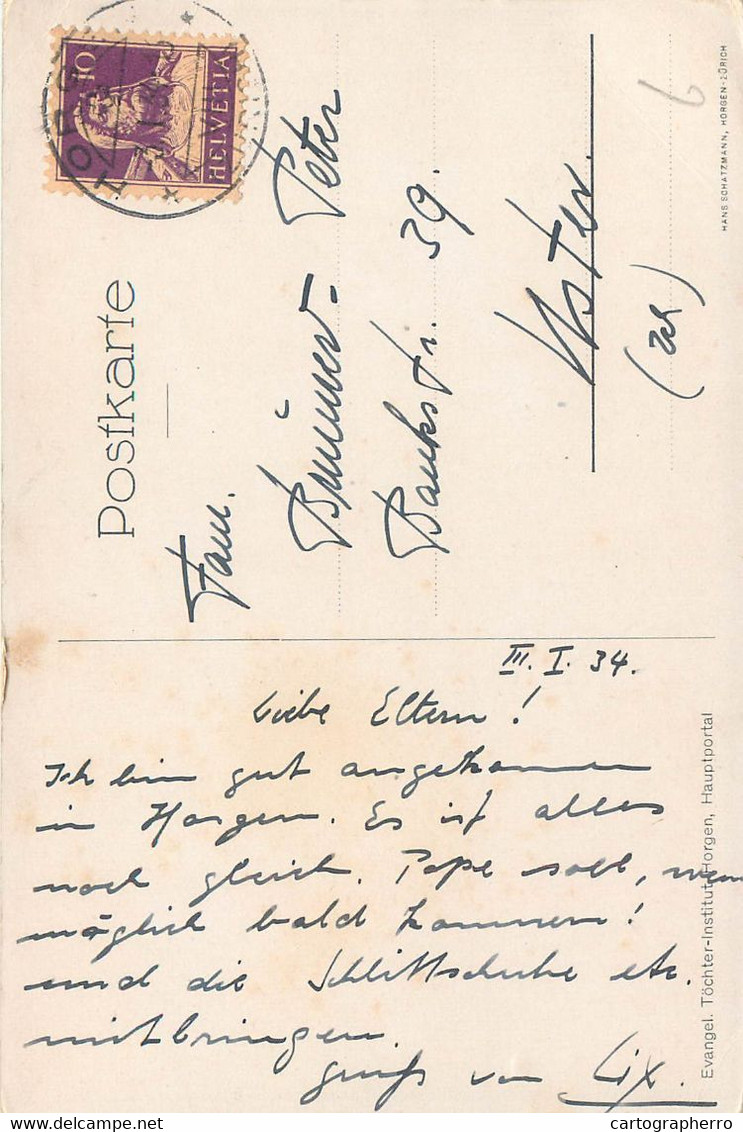 HORGEN
10
HELVETIA
Postkarte
Fam.
Brunner-Peter
Bankstr. 39.
Uster.
(Zch)
6
HANS SCHATZMANN, HORGEN-ZÜRICH
III. I. 34.
Liebe Eltern!
Ich bin gut angekommen
in Horgen. Es ist alles
noch gleich. Pape soll, wenn
möglich bald kommen!
und die Schlittschuhe etc.
mitbringen.
Gruß von Lix.
Evangel. Töchter-Institut Horgen, Hauptportal
cartographerro